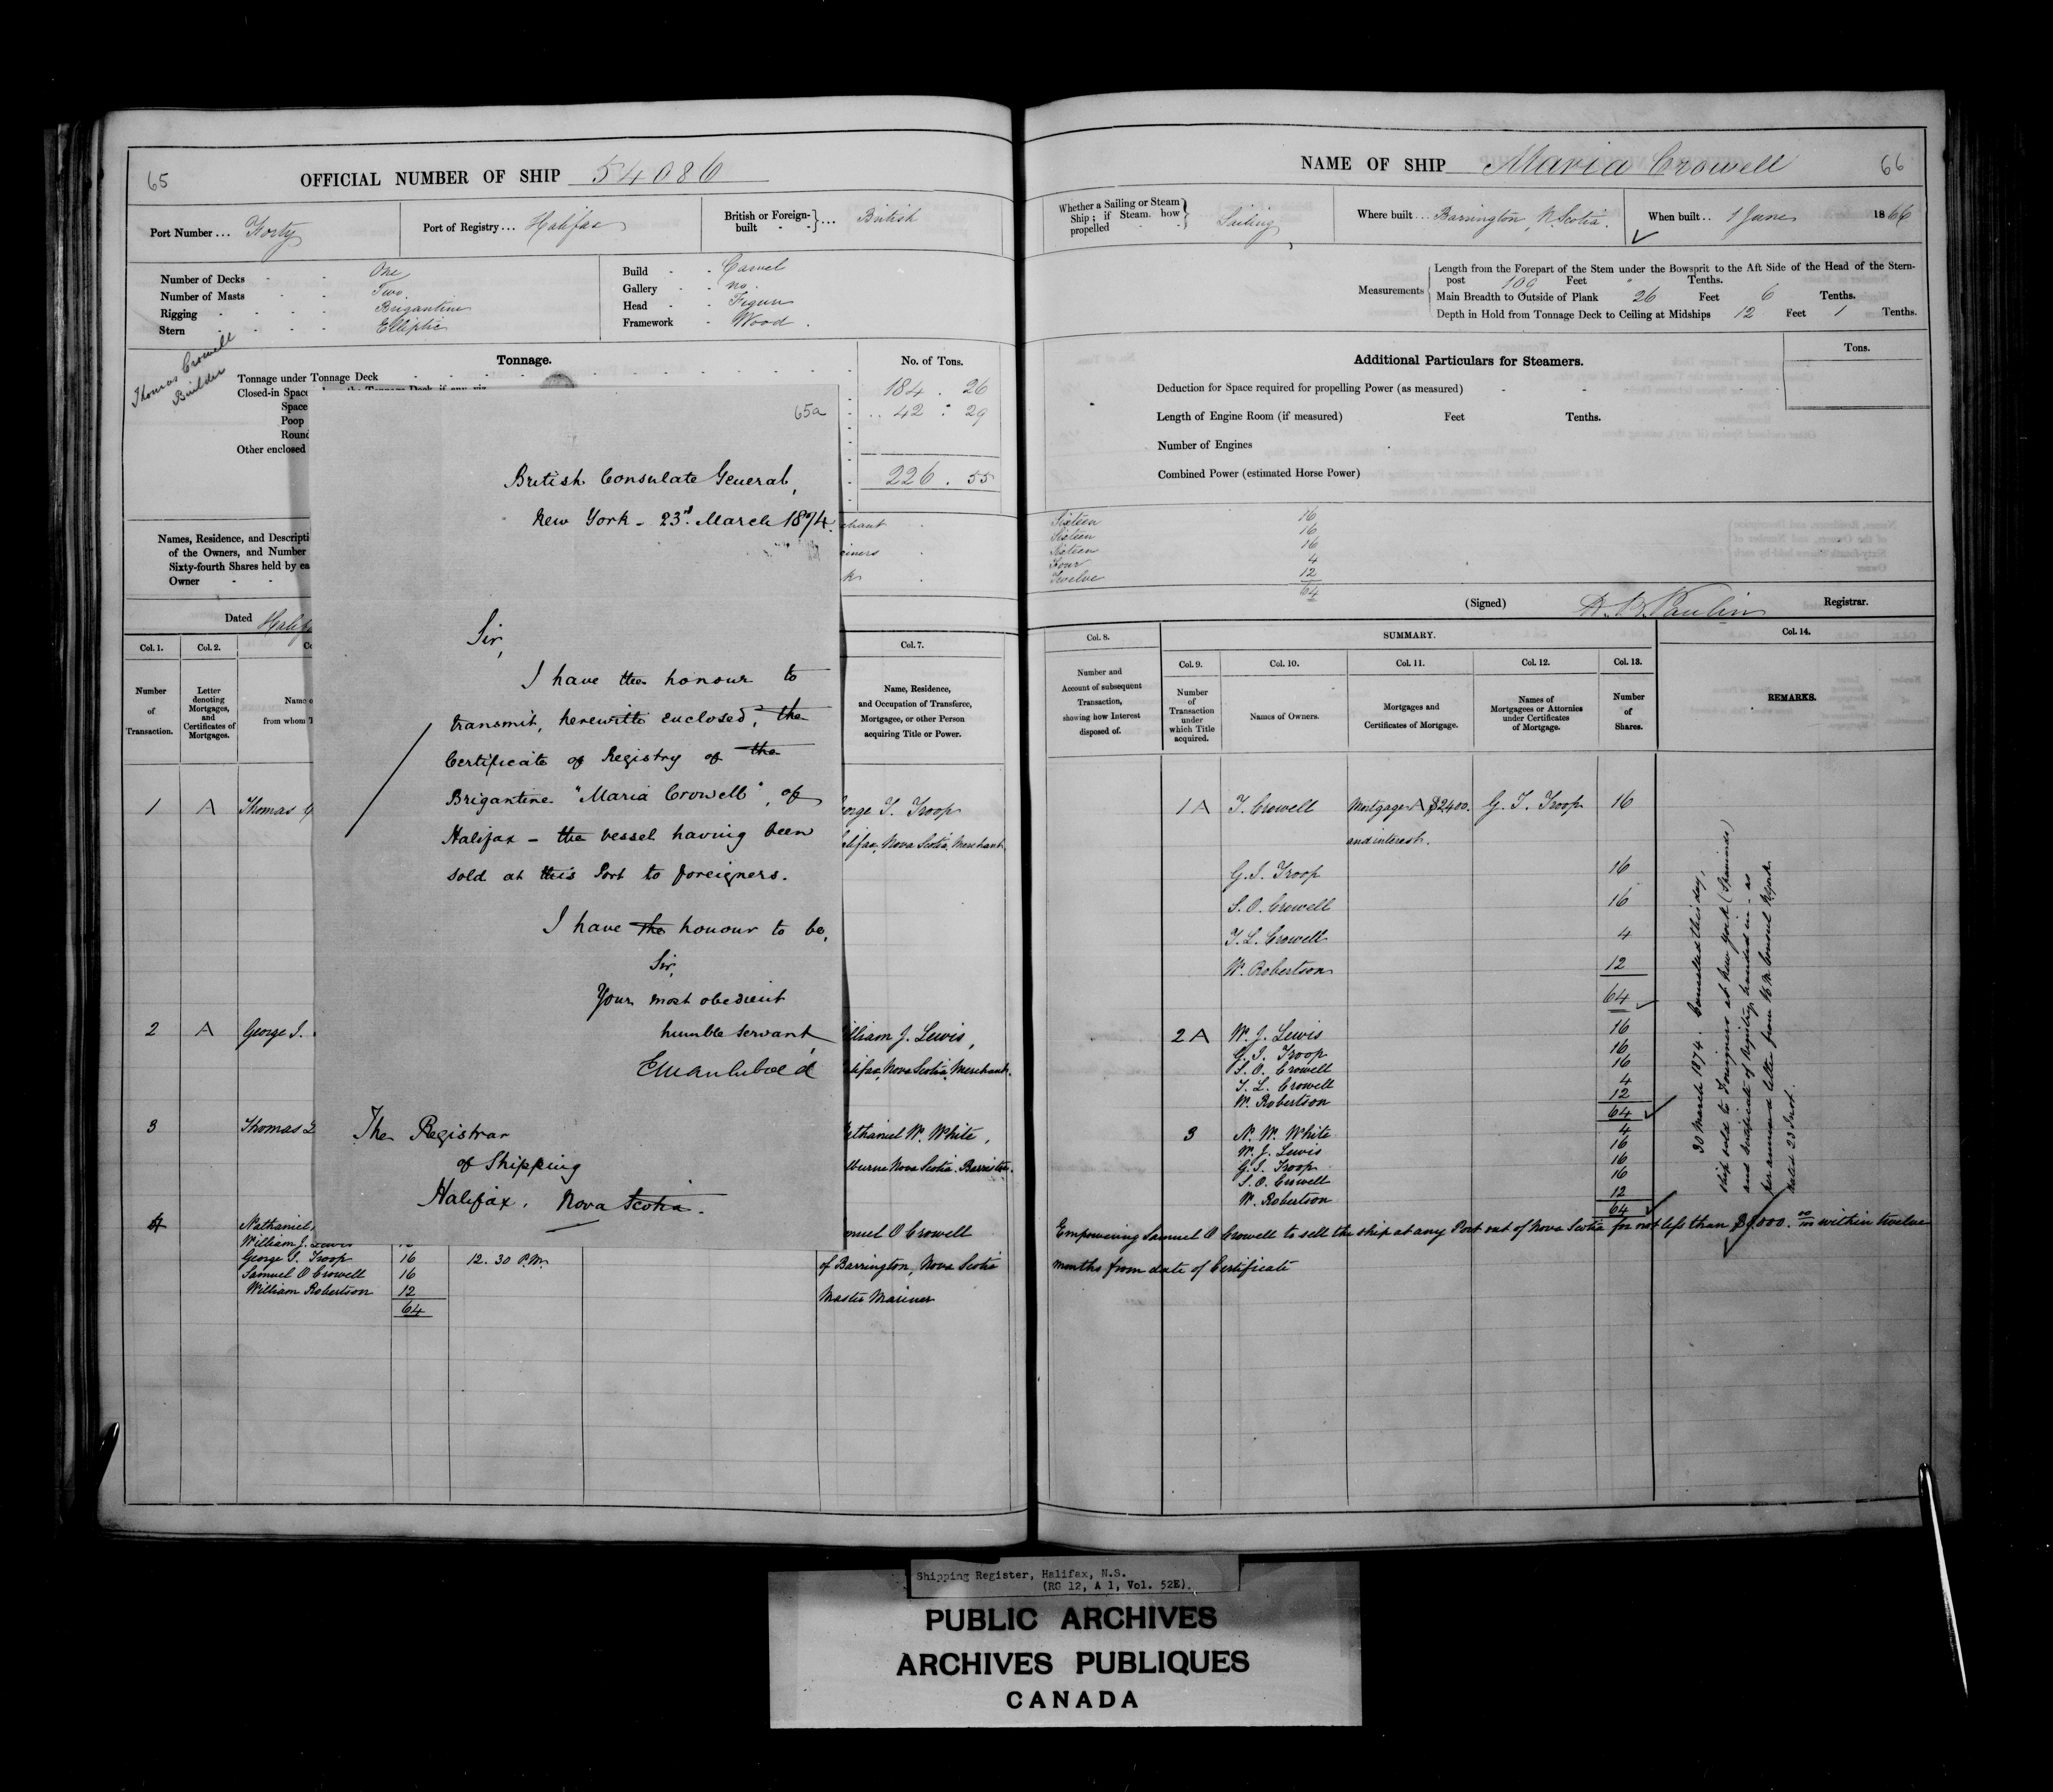 65
OFFICIAL NUMBER OF SHIP 54086
Port Number ... Forty
Port of Registry ... Halifax
British or Foreign-built ... British
Number of Decks - - One
Number of Masts - - Two
Rigging - - - - Brigantine
Stern - - - - Elliptic
Build - - Carvel
Gallery - - no.
Head - - Figure
Framework - Wood.
Thomas Crowell
Builder
Tonnage.
No. of Tons.
Tonnage under Tonnage Deck
184 . 26
Closed-in Space
Space
42 : 29
Poop
Round
Other enclosed
226 . 55
Names, Residence, and Descripti
of the Owners, and Number
Sixty-fourth Shares held by ea
Owner - -
Dated Halif
Col. 1.
Col. 2.
Col. 7.
Number of Transaction.
Letter denoting Mortgages, and Certificates of Mortgages.
Name o
from whom T
Name, Residence, and Occupation of Transferee, Mortgagee, or other Person acquiring Title or Power.
1 A Thomas
orge I. Troop
alifax, Nova Scotia, Merchant
2 A George I.
illiam J. Lewis,
alifax, Nova Scotia, Merchant.
3 Thomas L
athaniel W. White,
lburne Nova Scotia. Barrister.
4 Nathaniel
William J. Lewis
George I. Troop 16 12.30 P.M.
Samuel O Crowell 16
William Robertson 12
64
muel O Crowell
of Barrington, Nova Scotia
Master Mariner
65a
British Consulate General,
New York - 23rd. March 1874.
Sir,
I have the honour to
transmit, herewith enclosed, the
Certificate of Registry of the
Brigantine "Maria Crowell", of
Halifax - the vessel having been
sold at this Port to foreigners.
I have the honour to be,
Sir,
Your most obedient
humble servant,
The Registrar
of Shipping
Halifax. Nova Scotia.
NAME OF SHIP Maria Crowell
66
Whether a Sailing or Steam Ship; if Steam, how propelled - - Sailing
Where built ... Barrington, N. Scotia.
When built .. 1 June 1866
Measurements
Length from the Forepart of the Stem under the Bowsprit to the Aft Side of the Head of the Stern-
post 109 Feet " Tenths.
Main Breadth to Outside of Plank 26 Feet 6 Tenths.
Depth in Hold from Tonnage Deck to Ceiling at Midships 12 Feet 1 Tenths.
Additional Particulars for Steamers.
Tons.
Deduction for Space required for propelling Power (as measured)
Length of Engine Room (if measured) Feet Tenths.
Number of Engines
Combined Power (estimated Horse Power)
Sixteen 16
Sixteen 16
Sixteen 16
Four 4
Twelve 12
64
(Signed) Registrar.
Col. 8.
SUMMARY.
Col. 14.
Col. 9.
Col. 10.
Col. 11.
Col. 12.
Col. 13.
Number and Account of subsequent Transaction, showing how Interest disposed of.
Number of Transaction under which Title acquired.
Names of Owners.
Mortgages and Certificates of Mortgage.
Names of Mortgagees or Attornies under Certificates of Mortgage.
Number of Shares.
REMARKS.
1 A T. Crowell Mortgage A $2400. G. I. Troop 16
and interest.
G. I. Troop 16
S. O. Crowell 16
T. L. Crowell 4
W. Robertson 12
64
2 A W. J. Lewis 16
G. I. Troop 16
S. O. Crowell 16
T. L. Crowell 4
W. Robertson 12
64
3 N. W. White 4
W. J. Lewis 16
G. I. Troop 16
S. O. Crowell 16
W. Robertson 12
64
Empowering Samuel O Crowell to sell the ship at any Port out of Nova Scotia for not less than $9,000. 00/100 within twelve
months from date of Certificate
30 March 1874. Cancelled this day,
ship sold to Foreigners at New York (Spaniards)
and certificate of registry handed in - as
per annexed letter from H M Consul N York
dated 23 Inst.
Shipping Register, Halifax, N.S.
(RG 12, A 1, Vol. 52E).
PUBLIC ARCHIVES
ARCHIVES PUBLIQUES
CANADA